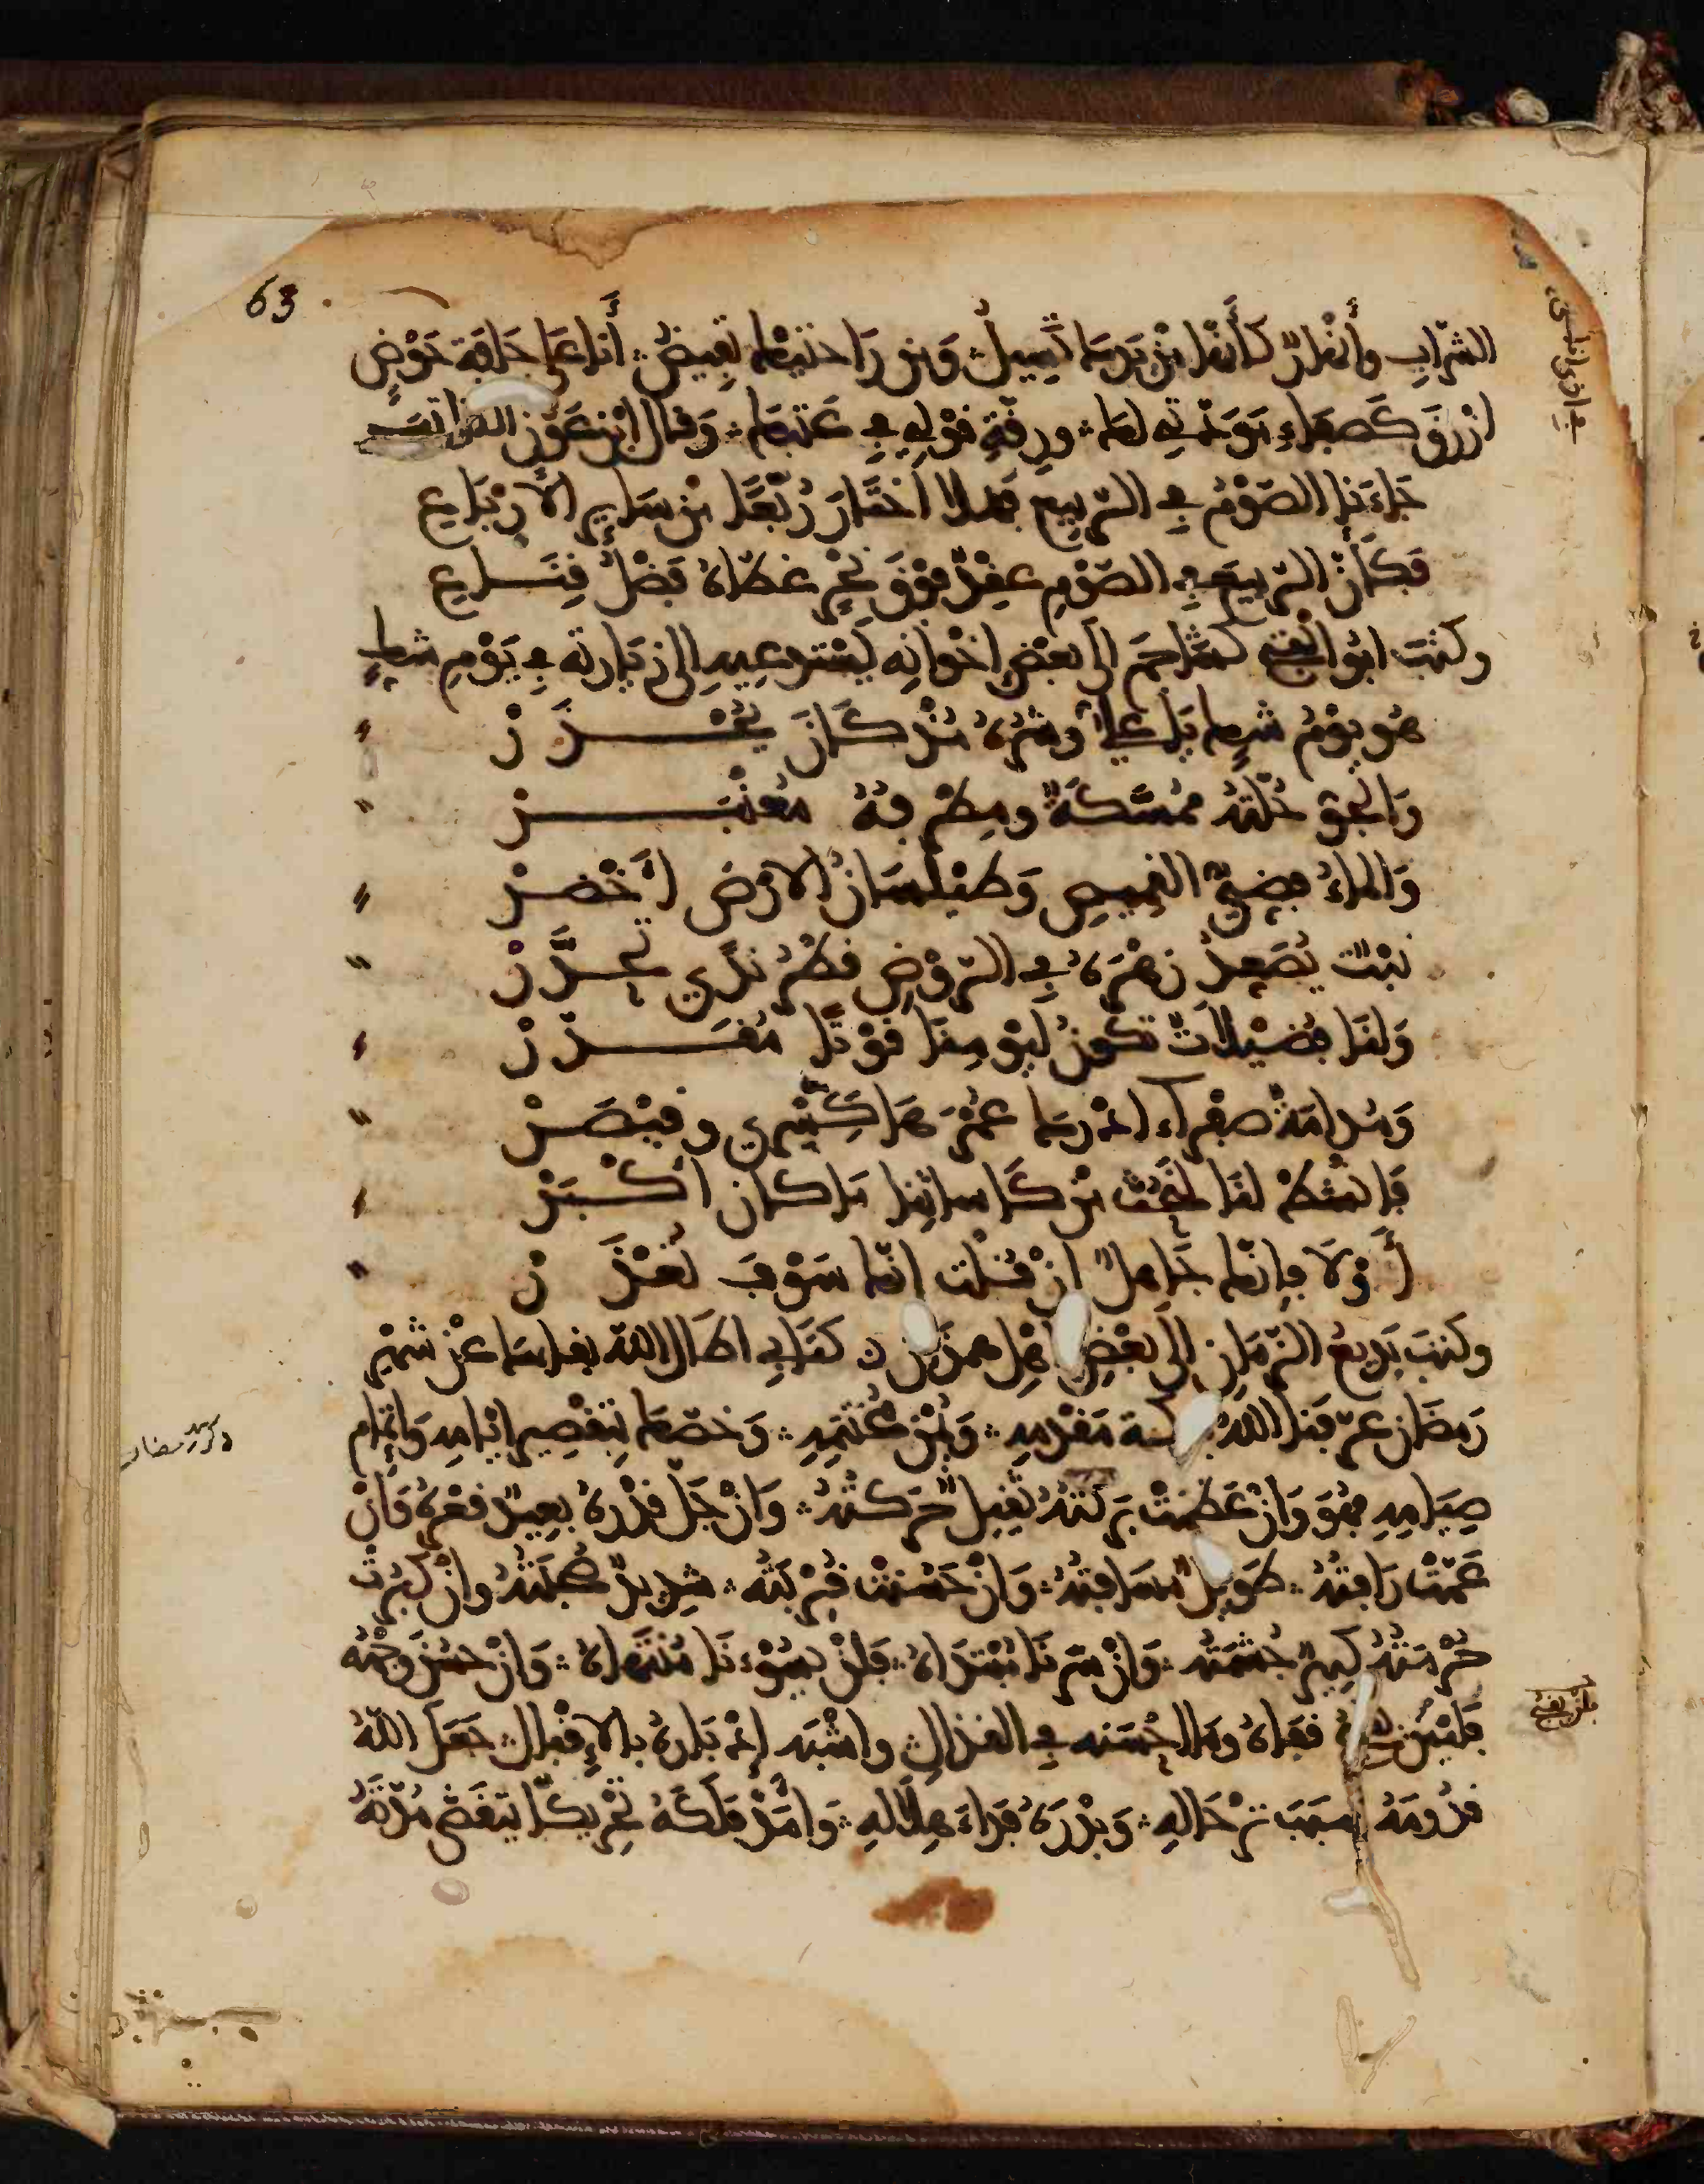 63
الشّرابِ وأَنْهارٌ كأَنّها مِنْ يَدِها تَسِيلُ وَمِن رَاحَتَيْها تَفِيضُ أنا عَلَى حَافَةِ حَوْضٍ
ازْرَقَ كَصَفاءِ مَوَدّتي لها ورِقّةِ قَوْلِي في عَتبِها وَقال ابْن عَوْن الكاتب
جَاءَنا الصَّوْمُ في الرّبيعِ فهلا اخْتَارَ رُبْعًا مِنْ سَايِرِ الأَرْبَاعِ
فَكَأَنَّ الرّبيعَ في الصّوْمِ عِقْدٌ فَوْقَ نَحْرٍ غطّاهُ فَضْلُ قِنَاعِ
وكتبَ ابُو الْفَتْحِ كشَاجِم الى بعْضِ اخْوانِه يَسْتدعِيهِ الى زِيَارتِه في يَوْمِ شكٍّ
هُو يوْمُ شكٍّ يا علىُّ وشرُّهُ مُذْ كَانَ يُحْذَرْ
وَالْجَوّ حُلّتُهُ مُمَسَّكَةٌ ومِطْرَفُهُ مُعَنْبَرْ
وَالماءُ فِضيُّ القَمِيصِ وَطيْلَسَانُ الارْضِ أَخْضَرْ
نبْتٌ يُصَعِّدُ زهْرَهُ في الرّوْضِ قَطْرُ ندًى تَحَدَّرْ
وَلنَا فُضَيْلَاتٌ تكُونُ لِيَوْمِنَا قَوْتًا مُقَدَّرْ
وَمُدامَةٌ صفْراءُ ادْرَكَ عُمْرَهَا كِسْرَى وقَيْصَرْ
فَانْشطْ لنَا لِنَحُثَّ مِنْ كَاسَاتِنا مَا كان اكْبَرْ
أَوْلَا فإِنّكَ جَاهلٌ انْ قُلْتَ انّكَ سَوْفَ تُعْذَرْ
وكتبَ بَدِيعُ الزّمَانِ إلَى بعْضِ اهْلِ همذَان كتَابِي اطَالَ اللّه بقاءَكَ عنْ شَهْرِ
رَمضَان عرّفَنا اللّهُ بركة مَقْدمِهِ وَيُمْنَ مُخْتَتَمِهِ وَخصّكَ بِتَقْصِيرِ ايّامِهِ وَاتْمَامِ
صِيَامِهِ فهُوَ وَانْ عَظُمَتْ بَرَكَتُهُ ثقِيلٌ حَرَكَتُهُ وَانْ جَلّ قدْرُهُ بعِيدٌ قعْرُهُ وَانْ
عَمّتْ رَافتُهُ طَوِيلٌ مسَافتُهُ وَانْ حَسُنتْ قُرْبَتُهُ شدِيدٌ صُحْبَتُهُ وانْ كبُرَتْ
حُرْمَتُهُ كثِيرٌ حِشْمَتُهُ وَانْ سَرّنَا مُبْتدَاهُ فلنْ يَسُوءَنا مُنْتَهاهُ وَانْ حسُنَ وَجْهُهُ
فليْسَ يقبح قفاهُ ومَا احْسَنه في القذالِ واشْبه ادْبَارهُ بالاِقْبالِ جَعَلَ اللّهُ
قدُومَهُ سبَبَ تَرْحَالِهِ وَبدْرَهُ فِدَاءَ هِلَالِهِ وَامَدّ فلَكَهُ تحْرِيكًا بتَقَضّي مُدّتِهِ